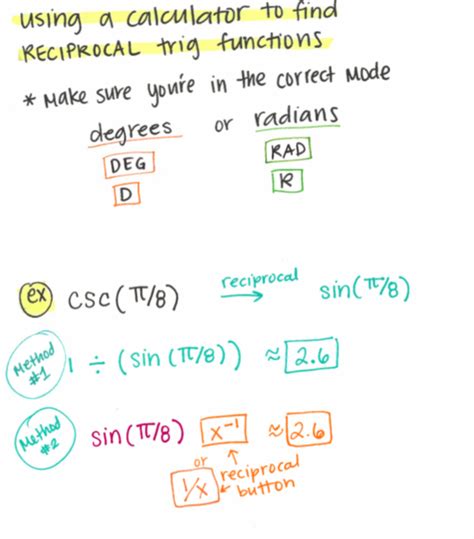 using a calculator to find
RECIPROCAL trig functions
* Make sure you're in the correct Mode
degrees or radians
DEG RAD
D R
ex csc(π/8) reciprocal → sin(π/8)
Method #1 1 ÷ (sin(π/8)) ≈ 2.6
Method #2 sin(π/8) x⁻¹ ≈ 2.6
or ↑
1/x reciprocal
button